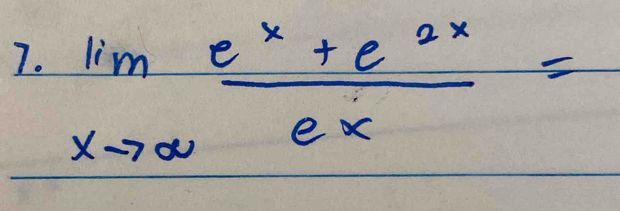 7. lim e^x + e^2x =
x→∞ ex